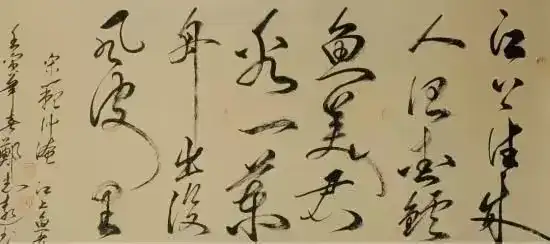 江上往來
人但愛鱸
魚美君
看一葉
舟出没
風波里
宋范仲淹 江上魚者
壬寅年春鄭